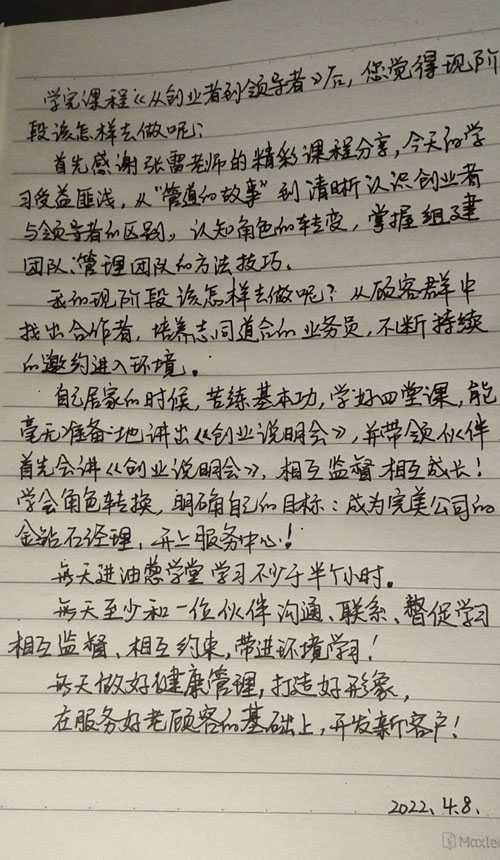 学完课程《从创业者到领导者》后，您觉得现阶
段该怎样去做呢？
首先感谢张雷老师的精彩课程分享，今天的学
习受益匪浅，从“管道的故事”到清晰认识创业者
与领导者的区别，认知角色的转变，掌握组建
团队、管理团队的方法技巧。
我的现阶段该怎样去做呢？从顾客群中
找出合作者，培养志同道合的业务员，不断持续
的邀约进入环境。
自己居家的时候，苦练基本功，学好四堂课，能
毫无准备地讲出《创业说明会》，并带领伙伴
首先会讲《创业说明会》，相互监督相互成长！
学会角色转换，明确自己的目标：成为完美公司的
金钻石经理，开上服务中心！
每天进油葱学堂学习不少于半个小时。
每天至少和一位伙伴沟通、联系、督促学习
相互监督、相互约束，带进环境学习！
每天做好健康管理，打造好形象，
在服务好老顾客的基础上，开发新客户！
2022.4.8.